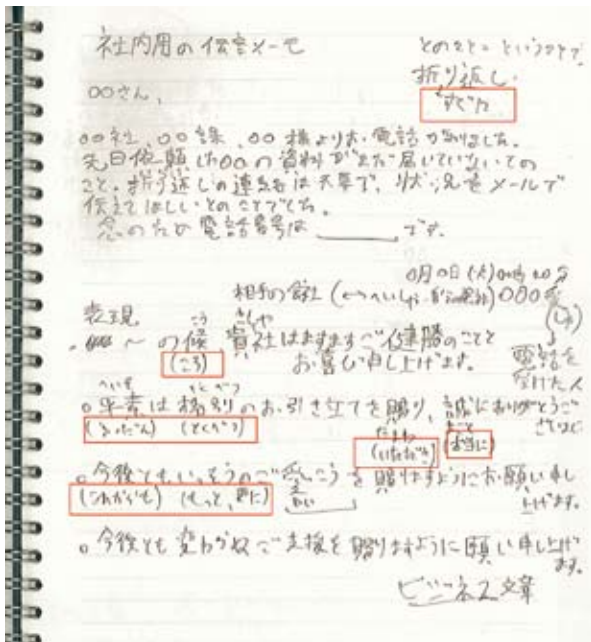 社内用の伝言メモ
とのこと=ということです。
折り返し
すぐに
○○さん、
○○社、○○課、○○様よりお電話がありました。
先日依頼した○○の資料がまだ届いていないとの
こと。折り返しの連絡は不要で、状況をメールで
伝えてほしいとのことでした。
念のため電話番号は______です。
○月○日(火)○○時○○分
相手の会社(←→へいしゃ
○○○受
電話を
受けた人
表現
~の候、貴社はますますご健勝のことと
こう
きしゃ
(ころ)
お喜び申し上げます。
へいそ
かくべつ
○平素は格別のお引き立てを賜り、誠にありがとうござ
(ふだん)(とくべつ)
たまわ
まこと
(いただき)
(本当に)
○今後ともいっそうのご愛こうを賜りますようにお願い申し
(これからも)(もっと、更に)
上げます。
○今後とも変わらぬご支援を賜りますように願い申し上げ
ます。
ビジネス文章